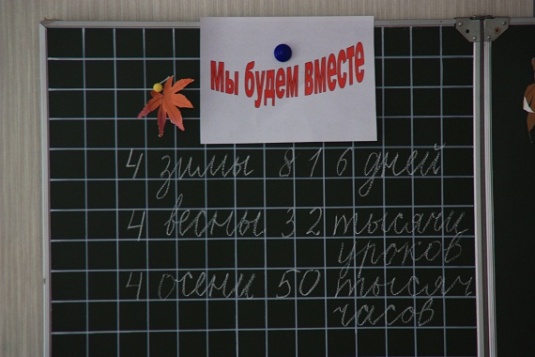 Мы будем вместе
4 зимы 816 дней
4 весны 32 тысячи
уроков
4 осени 50 тысяч
часов